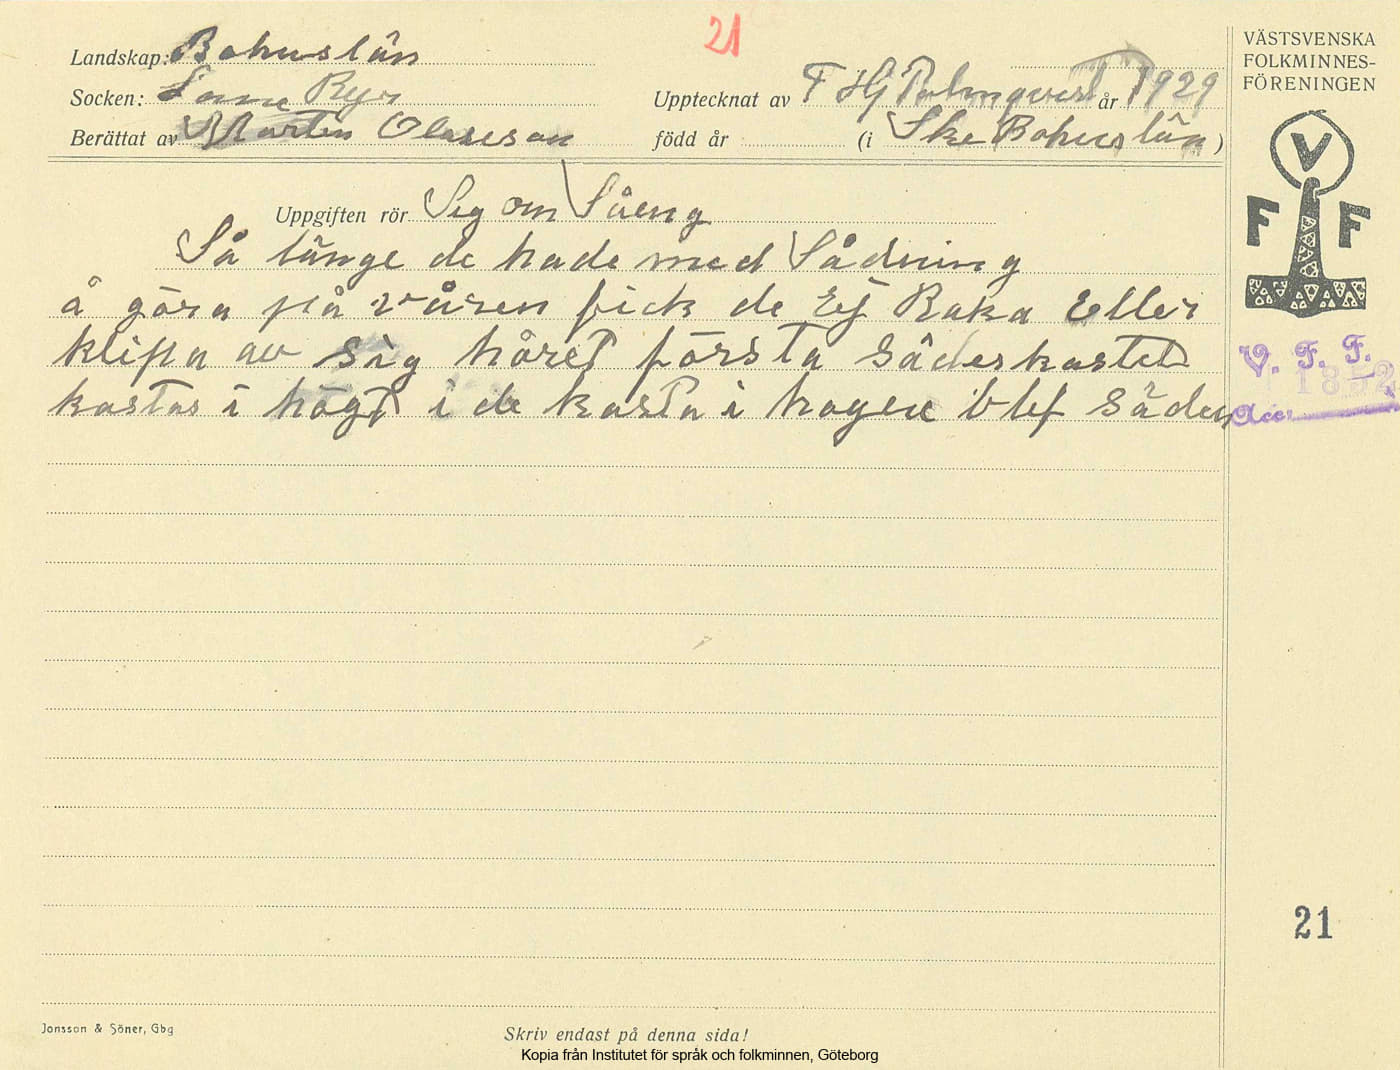 21
VÄSTSVENSKA
FOLKMINNES-
FÖRENINGEN
Landskap: Bohuslän
Socken: Lane Ryr
Upptecknat av F Hj Palmqvist år 1929
Berättat av Marten Olavson
född år (i Ske Bohuslän)
V
F F
Uppgiften rör Seg om Såeng
Så länge de hade med Sådning
å göra på våren fick de Ej Raka Eller
klipa av Såg håret första sädeskastet
kastas i högt i de kasta i hagen blef säden
V. F. F.
1852
Acc.
21
Jonsson & Söner, Gbg
Skriv endast på denna sida!
Kopia från Institutet för språk och folkminnen, Göteborg